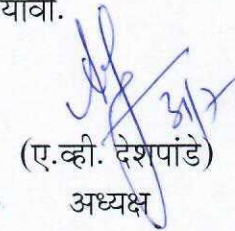 यावा.
31/7
(ए.व्ही. देशपांडे)
अध्यक्ष